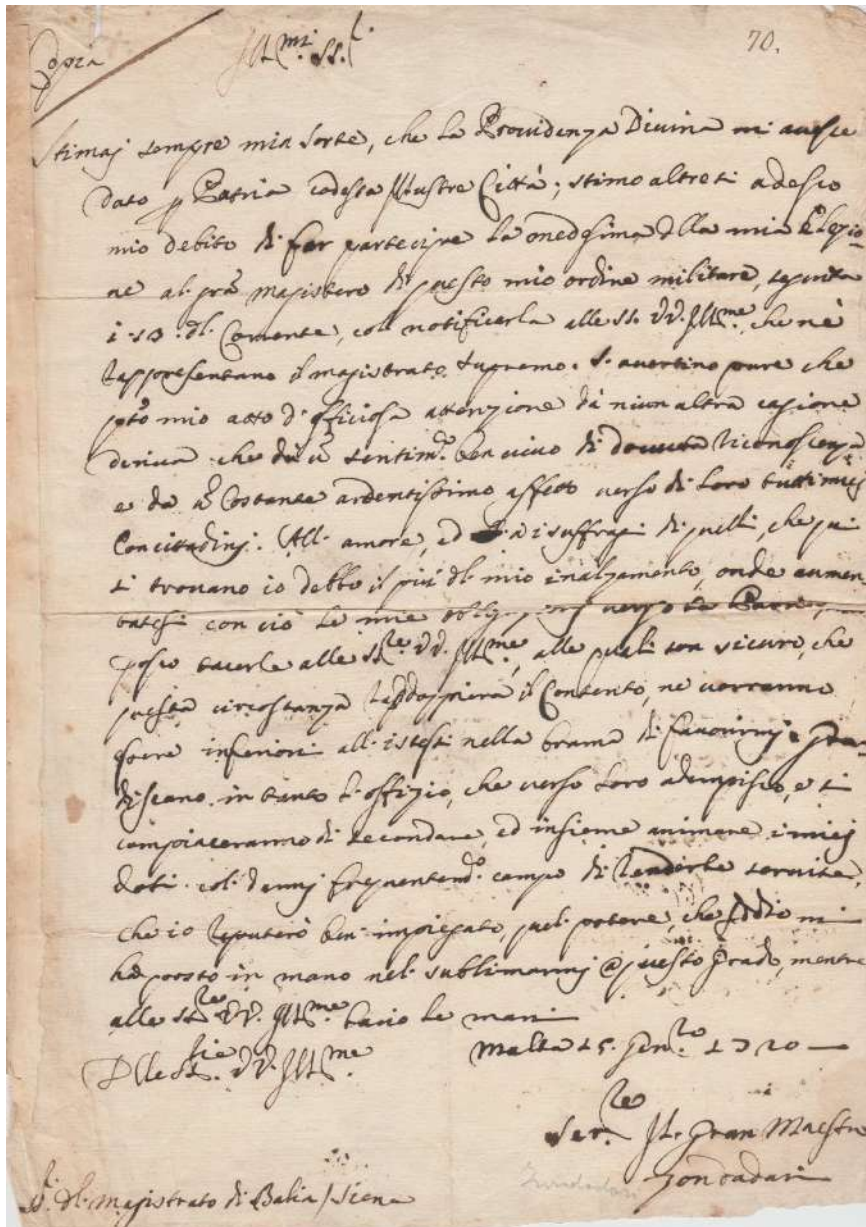 Copia
Ill.mi SS.i
70.
Stimai sempre mia sorte, che la Providenza Divina mi avesse
dato p Patria codesta Illustre Città; stimo altresi adesso
mio debito di far partecipe la medesima dlla mia Elezio-
ne al grã Magistero di questo mio ordine militare, seguita
i 13. dl Corrente, col notificarla alle SS. VV. Ill.me, che nè
rappresentano il magistrato supremo. S. avertino pure che
qsto mio atto d'officiosa attenzione da niun altra cagione
deriva che da ũ sentim.to ben vivo di dovuta riconoscenza
e da ũ Costante ardentissimo affetto verso di Loro tutti miei
Concittadinj. All' amore, ed a i suffragi di quelli, che qui
si trovano io debbo il più dl mio inalzamento, onde aumen
tatesi con ciò le mie obligazioni verso la Patria,
posso tacerle alle SS.rie VV. Ill.me, alle quali son sicuro, che
questa circostanza rapdoppierà il Contento, ne vorranno
essere inferiori all' istessi nella brama di favorirmj. Gra-
discano in tanto l' offizio, che verso Loro adempisco, e si
compiaceranno di secondare, ed insieme animare i miej
voti col darmj frequentem.te campo di renderle servite,
che io reputerò ben impiegato, quel potere, che Iddio mi
ha posto in mano nel sublimarmj a questo Grado, mentre
alle SS.rie VV. Ill.me bacio le mani
Dlle SS.rie VV. Ill.me
Malta 15. Gen.ro 1720
Ser.re Il Gran Maestro
Zondadari
Zondadari
SS.i dl Magistrato di Balia / Siena